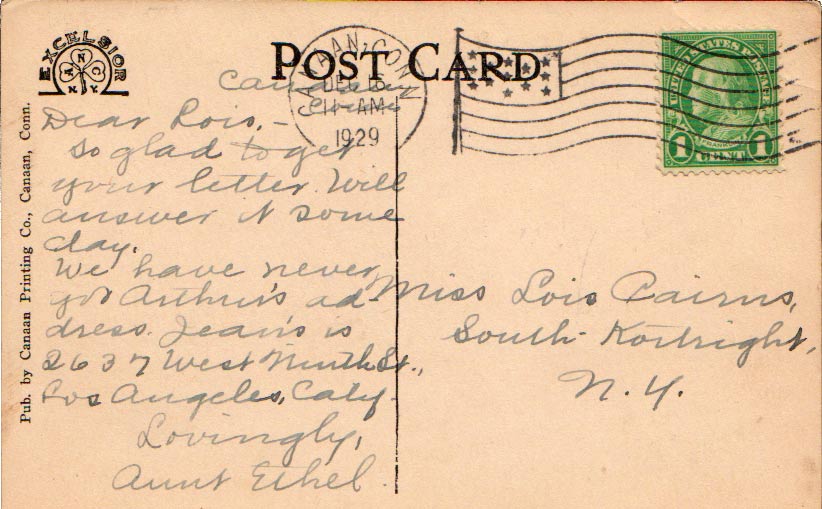 EXCELSIOR
A N C
N.Y.
POST CARD
CANAAN, CONN.
DEC 16
11-AM
1929
UNITED STATES POSTAGE
FRANKLIN
1 CENT 1
Pub. by Canaan Printing Co., Canaan, Conn.
Canaan
Conn
Dear Lois, -
So glad to get
your letter. Will
answer it some
day.
We have never
got Arthur's ad-
dress. Jean's is
2637 West Ninth St.,
Los Angeles, Caly.
Lovingly,
Aunt Ethel.
Miss Lois Cairns,
South Kortright,
N.Y.